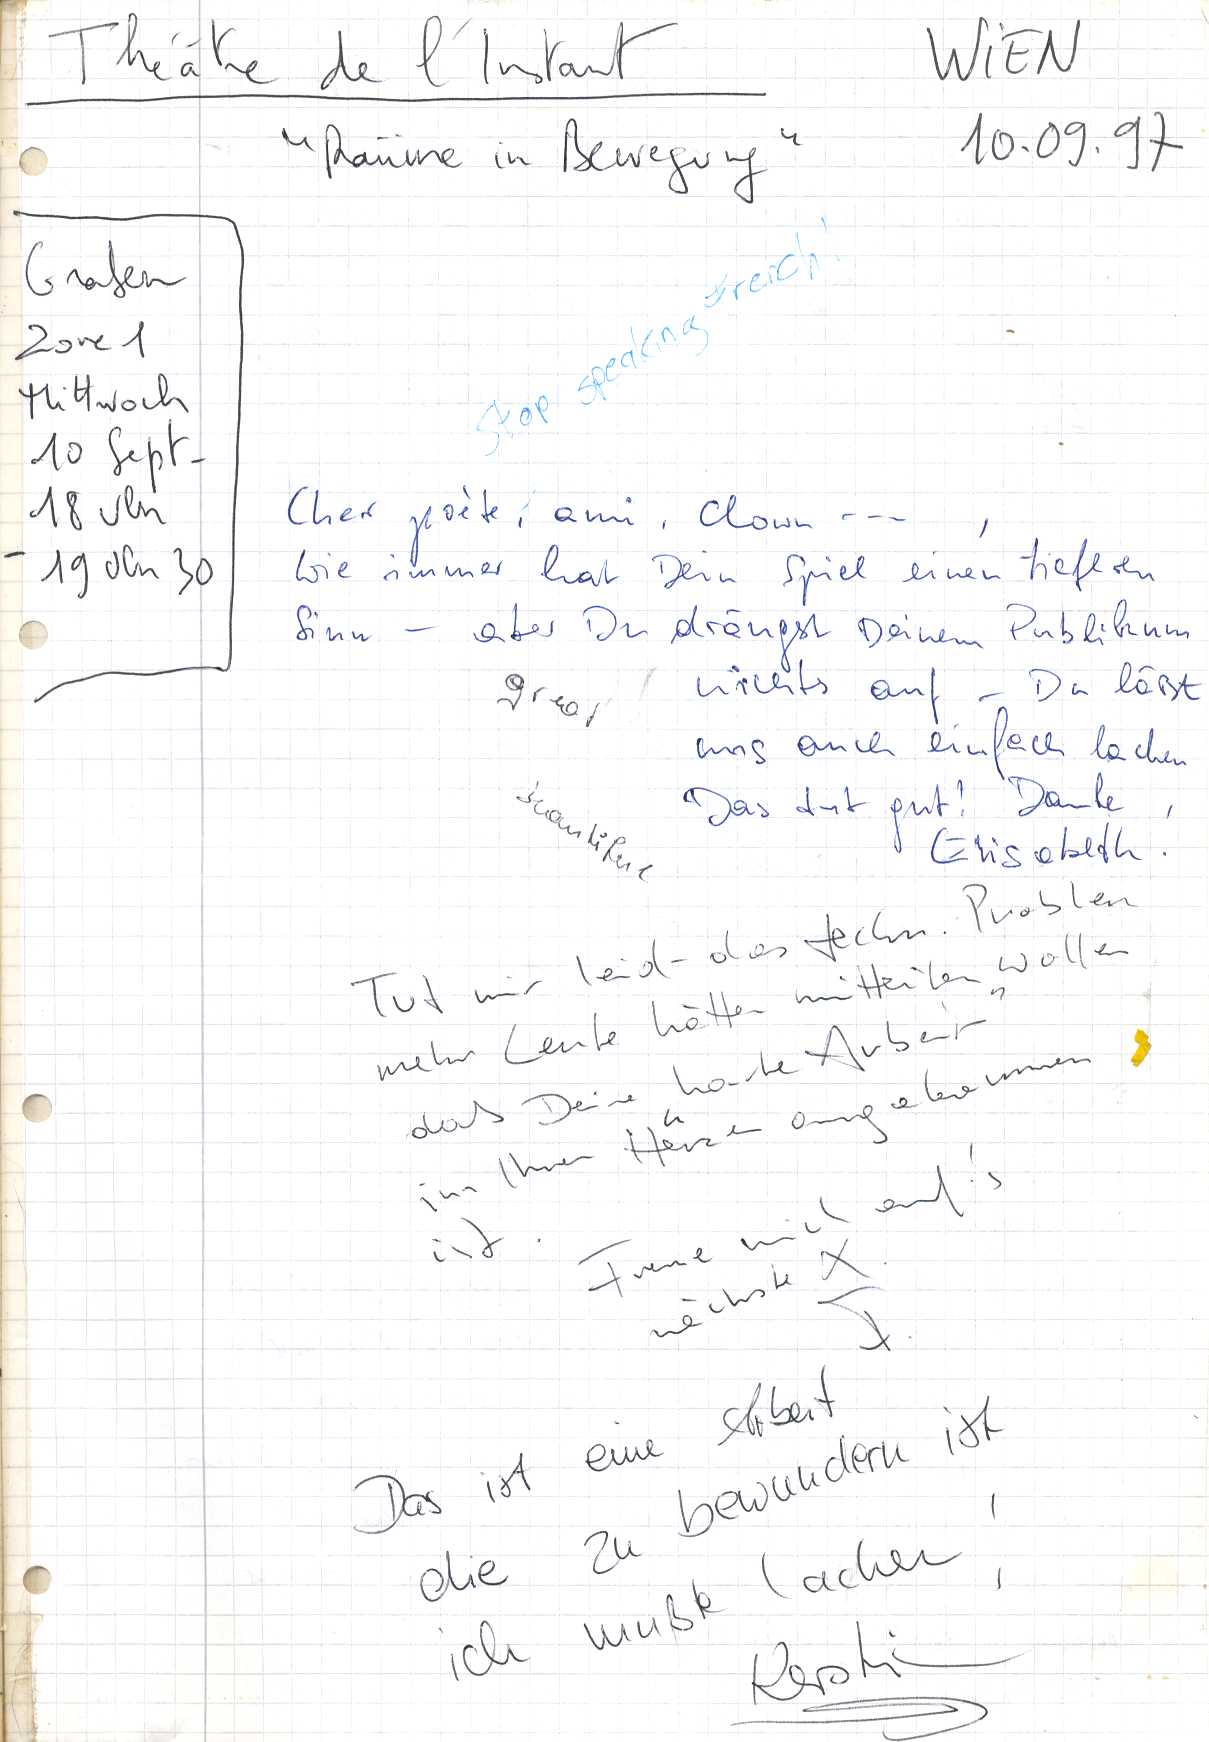 Théâtre de l'Instant
WIEN
"Räume in Bewegung"
10.09.97
Graben
Zone 1
Mittwoch
10 Sept-
18 Uhr
- 19 Uhr 30
Stop speaking
Cher poète, ami, Clown --- ,
Wie immer hat Dein Spiel einen tieferen
Sinn - aber Du drängst Deinem Publikum
nichts auf - Du läßt
uns auch einfach lachen
Das tut gut! Danke,
Elisabeth.
great
Tut mir leid - das techn. Problem
mehr Leute hätten mitteilen wollen
daß Deine "harte Arbeit"
in Ihren Herzen angekommen
ist.
Freue mich auf's
nächste X.
Das ist eine Arbeit
die zu bewundern ist
ich mußte lachen,
Kerstin